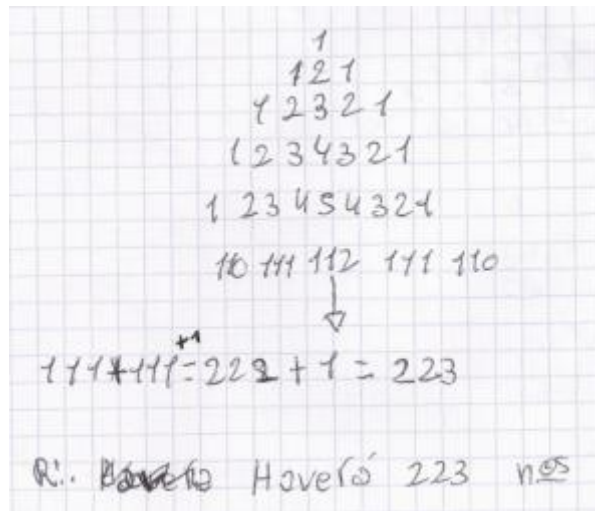 1
1 2 1
1 2 3 2 1
1 2 3 4 3 2 1
1 2 3 4 5 4 3 2 1
110 111 112 111 110
+1
111+111=222 + 1 = 223
R: Haverá 223 nos